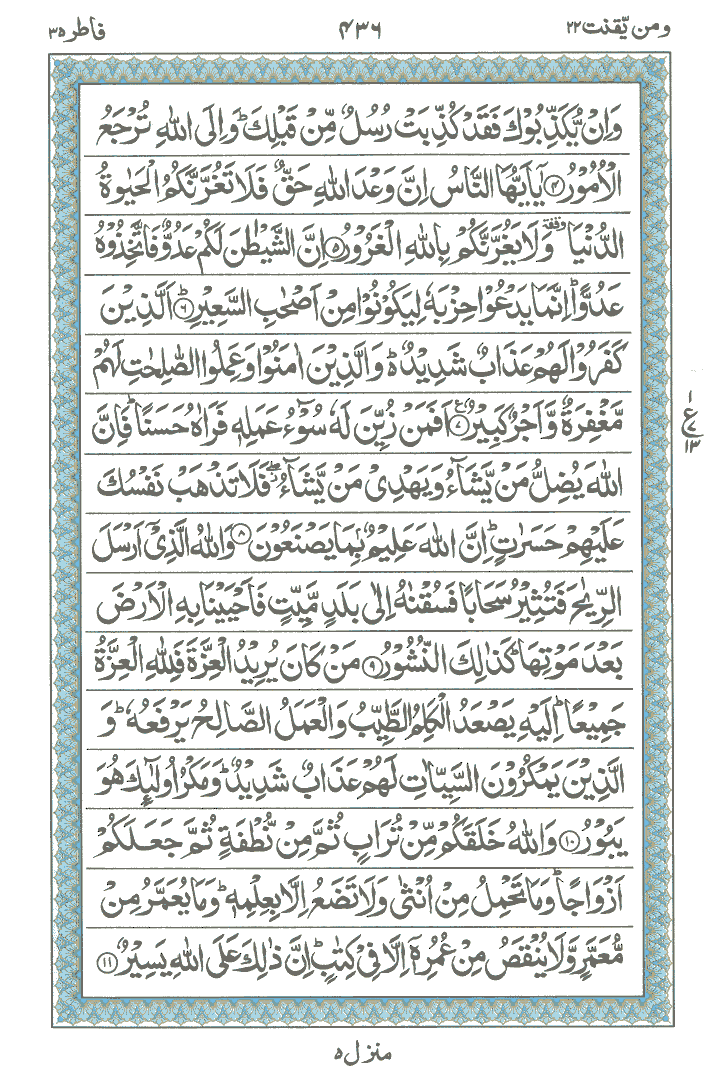 ومن یّقنت ۲۲ ۴۳۶ فاطر ۳۵
وَاِنْ یُّكَذِّبُوْكَ فَقَدْ كُذِّبَتْ رُسُلٌ مِّنْ قَبْلِكَ ؕ وَاِلَى اللّٰهِ تُرْجَعُ
الْاُمُوْرُ ﴿۴﴾ یٰۤاَیُّهَا النَّاسُ اِنَّ وَعْدَ اللّٰهِ حَقٌّ فَلَا تَغُرَّنَّكُمُ الْحَیٰوةُ
الدُّنْیَا ۥ وقفة وَلَا یَغُرَّنَّكُمْ بِاللّٰهِ الْغَرُوْرُ ﴿۵﴾ اِنَّ الشَّیْطٰنَ لَكُمْ عَدُوٌّ فَاتَّخِذُوْهُ
عَدُوًّا ؕ اِنَّمَا یَدْعُوْا حِزْبَهٗ لِیَكُوْنُوْا مِنْ اَصْحٰبِ السَّعِیْرِ ﴿۶﴾ؕ اَلَّذِیْنَ
كَفَرُوْا لَهُمْ عَذَابٌ شَدِیْدٌ ۬ؕ وَالَّذِیْنَ اٰمَنُوْا وَعَمِلُوا الصّٰلِحٰتِ لَهُمْ
مَّغْفِرَةٌ وَّاَجْرٌ كَبِیْرٌ ﴿۷﴾ۧ اَفَمَنْ زُیِّنَ لَهٗ سُوْٓءُ عَمَلِهٖ فَرَاٰهُ حَسَنًا ؕ فَاِنَّ
اللّٰهَ یُضِلُّ مَنْ یَّشَآءُ وَیَهْدِیْ مَنْ یَّشَآءُ ۖؗ فَلَا تَذْهَبْ نَفْسُكَ
عَلَیْهِمْ حَسَرٰتٍ ؕ اِنَّ اللّٰهَ عَلِیْمٌۢ بِمَا یَصْنَعُوْنَ ﴿۸﴾ وَاللّٰهُ الَّذِیْۤ اَرْسَلَ
الرِّیٰحَ فَتُثِیْرُ سَحَابًا فَسُقْنٰهُ اِلٰی بَلَدٍ مَّیِّتٍ فَاَحْیَیْنَا بِهِ الْاَرْضَ
بَعْدَ مَوْتِهَا ؕ كَذٰلِكَ النُّشُوْرُ ﴿۹﴾ مَنْ كَانَ یُرِیْدُ الْعِزَّةَ فَلِلّٰهِ الْعِزَّةُ
جَمِیْعًا ؕ اِلَیْهِ یَصْعَدُ الْكَلِمُ الطَّیِّبُ وَالْعَمَلُ الصَّالِحُ یَرْفَعُهٗ ؕ وَ
الَّذِیْنَ یَمْكُرُوْنَ السَّیِّاٰتِ لَهُمْ عَذَابٌ شَدِیْدٌ ؕ وَمَكْرُ اُولٰٓىِٕكَ هُوَ
یَبُوْرُ ﴿۱۰﴾ وَاللّٰهُ خَلَقَكُمْ مِّنْ تُرَابٍ ثُمَّ مِنْ نُّطْفَةٍ ثُمَّ جَعَلَكُمْ
اَزْوَاجًا ؕ وَمَا تَحْمِلُ مِنْ اُنْثٰی وَلَا تَضَعُ اِلَّا بِعِلْمِهٖ ؕ وَمَا یُعَمَّرُ مِنْ
مُّعَمَّرٍ وَّلَا یُنْقَصُ مِنْ عُمُرِهٖۤ اِلَّا فِیْ كِتٰبٍ ؕ اِنَّ ذٰلِكَ عَلَى اللّٰهِ یَسِیْرٌ ﴿۱۱﴾
۱
ع ۷
۱۳
منزل ۵